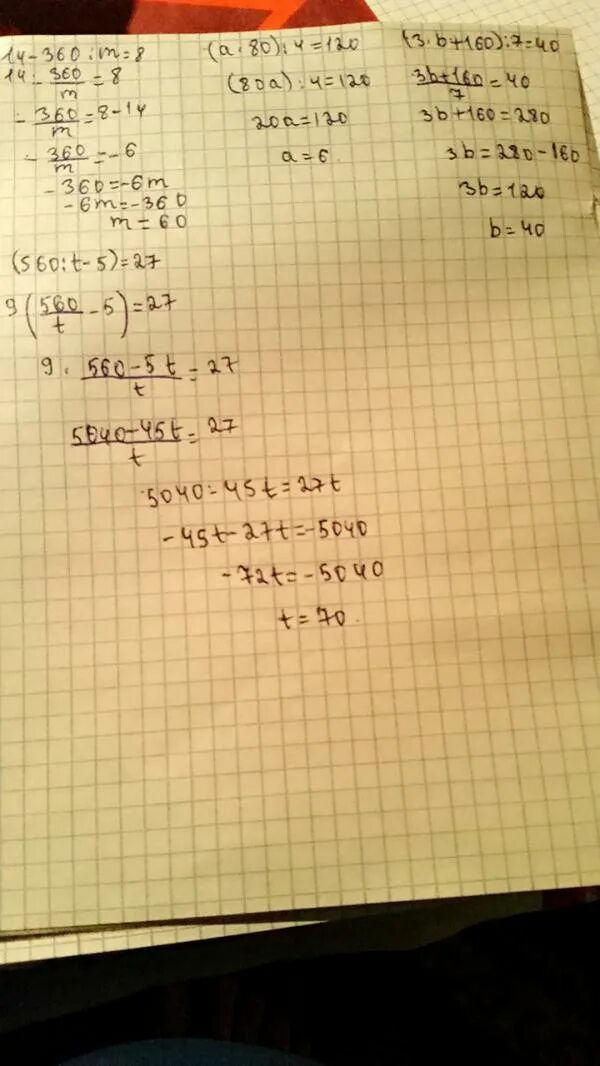 14-360:m=8
14-360/m=8
-360/m=8-14
-360/m=-6
-360=-6m
-6m=-360
m=60
(a·80):4=120
(80a):4=120
20a=120
a=6.
(3·b+160):7=40
3b+160/7=40
3b+160=280
3b=280-160
3b=120
b=40
(560:t-5)=27
9(560/t-5)=27
9·560-5t/t=27
5040-45t/t=27
5040-45t=27t
-45t-27t=-5040
-72t=-5040
t=70.